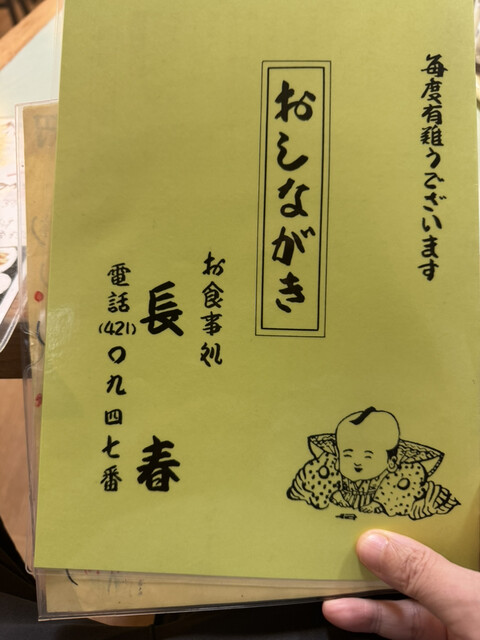 毎度有難うございます
おしながき
お食事処
長春
電話(421)〇九四七番